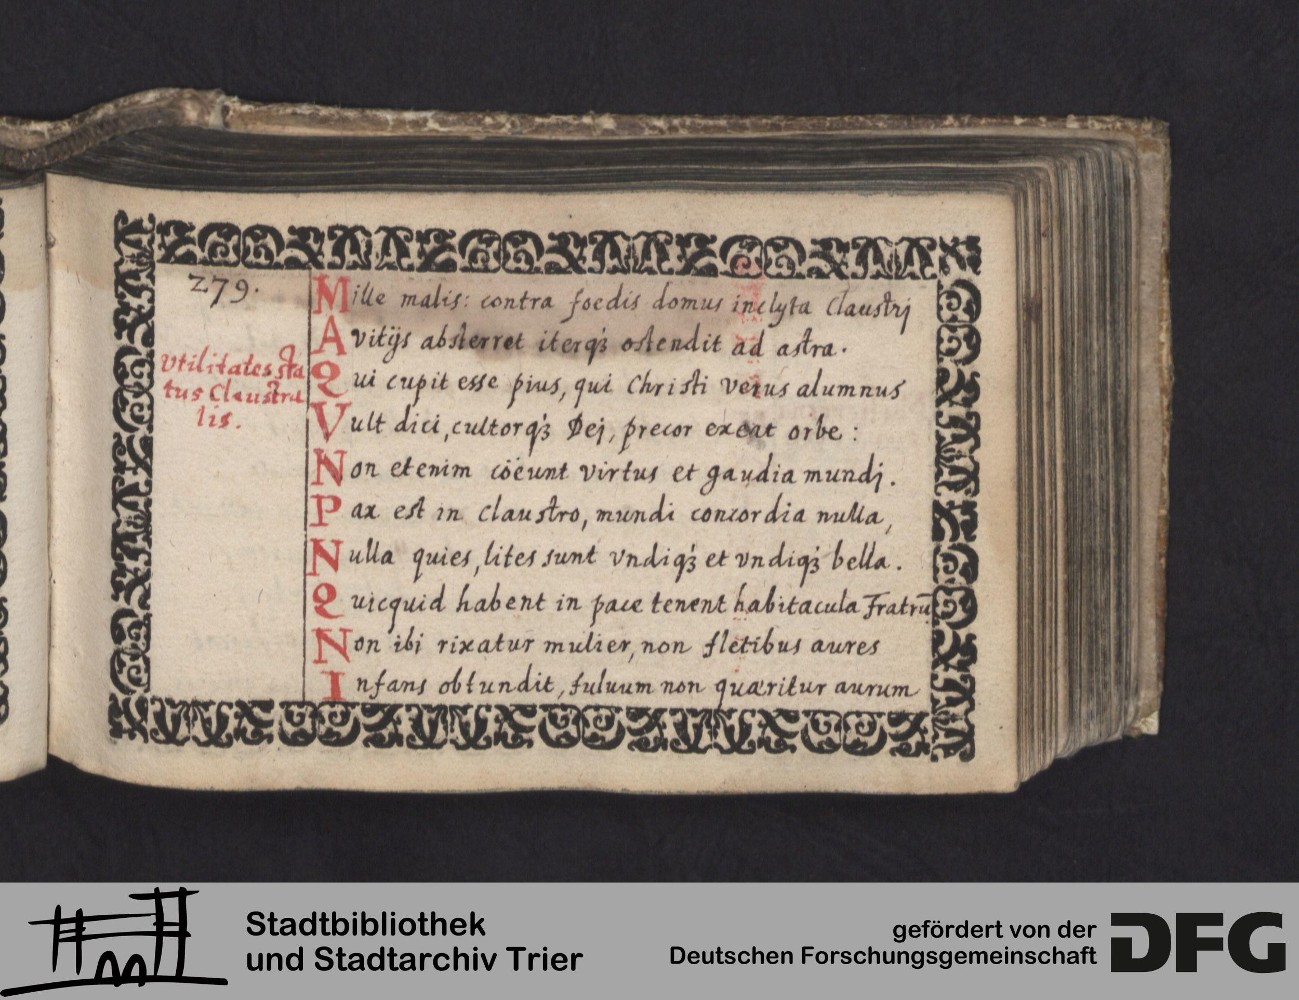 279.
Vtilitates sta
tus Claustra
lis.
Mille malis: contra foedis domus inclyta Claustrj
A vitijs absterret iterqꝫ ostendit ad astra.
Qui cupit esse pius, qui Christi verus alumnus
Vult dici, cultorqꝫ Dej, precor exeat orbe:
Non etenim coëunt virtus et gaudia mundj.
Pax est in claustro, mundi concordia nulla,
Nulla quies, lites sunt vndiqꝫ et vndiqꝫ bella.
Quicquid habent in pace tenent habitacula Fratrū
Non ibi rixatur mulier, non fletibus aures
Infans obtundit, fuluum non quæritur aurum
Stadtbibliothek
und Stadtarchiv Trier
gefördert von der
Deutschen Forschungsgemeinschaft
DFG